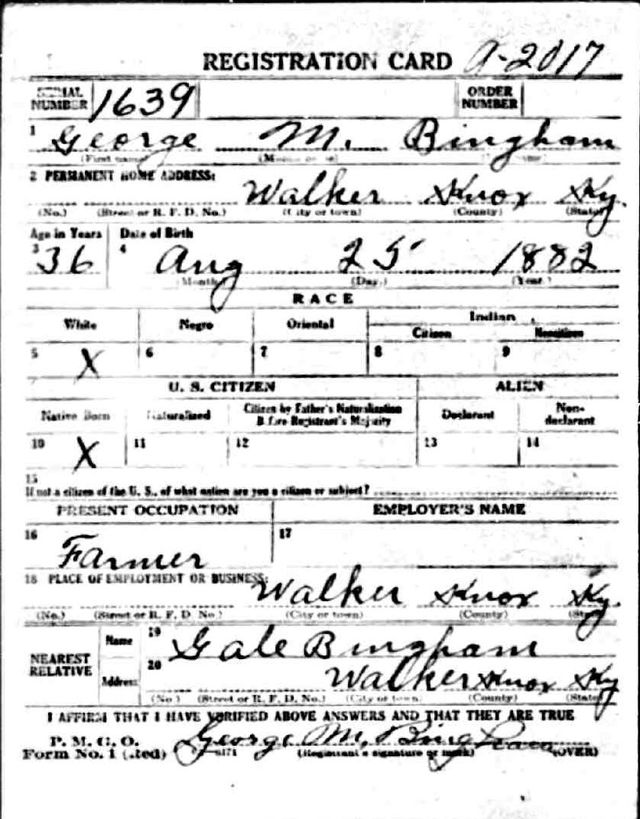 REGISTRATION CARD A-2017
SERIAL NUMBER 1639 ORDER NUMBER
1 George M. Bingham
(First name) (Middle name)
2 PERMANENT HOME ADDRESS: Walker Knox Ky.
(No.) (Street or R. F. D. No.) (City or town) (County) (State)
Age in Years Date of Birth
3 36 4 Aug 25 1882
(Month) (Day) (Year)
RACE
White Negro Oriental Indian
Citizen Noncitizen
5 X 6 7 8 9
U. S. CITIZEN ALIEN
Native Born Naturalized Citizen by Father's Naturalization Before Registrant's Majority Declarant Non-declarant
10 X 11 12 13 14
15
If not a citizen of the U. S., of what nation are you a citizen or subject?
PRESENT OCCUPATION EMPLOYER'S NAME
16 Farmer 17
18 PLACE OF EMPLOYMENT OR BUSINESS: Walker Knox Ky.
(No.) (Street or R. F. D. No.) (City or town) (County) (State)
NEAREST RELATIVE Name 19 Gale Bingham
Address 20 Walker Knox Ky
(No.) (Street or R. F. D. No.) (City or town) (County) (State)
I AFFIRM THAT I HAVE VERIFIED ABOVE ANSWERS AND THAT THEY ARE TRUE
P. M. G. O.
Form No. 1 (Red) George M. Bingham
(Registrant's signature or mark) (OVER)